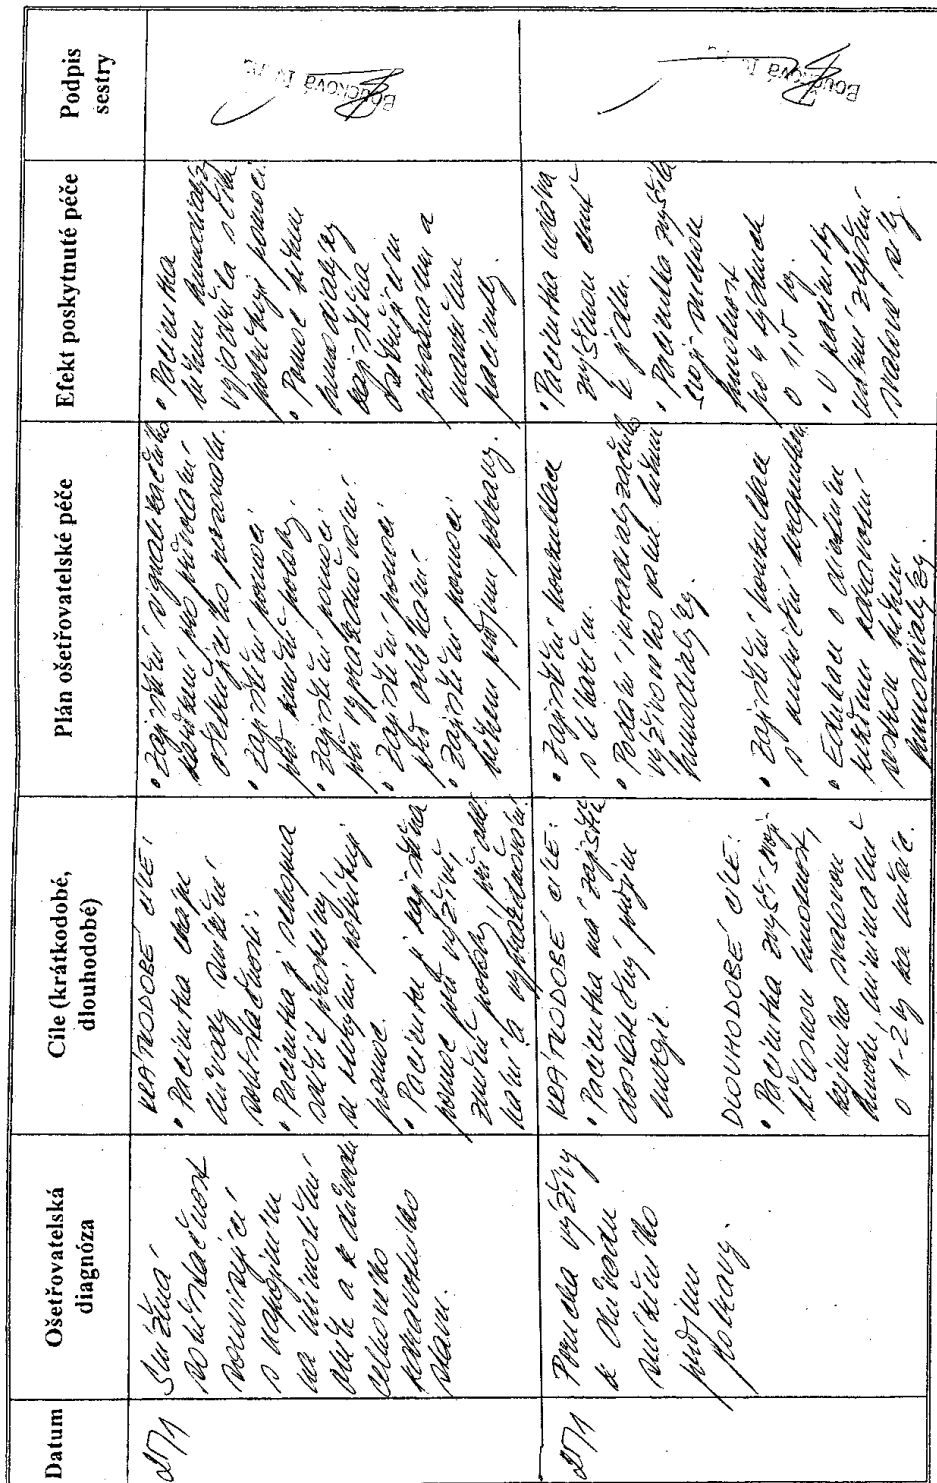 Datum
Ošetřovatelská
diagnóza
Cíle (krátkodobé,
dlouhodobé)
Plán ošetřovatelské péče
Efekt poskytnuté péče
Podpis
sestry
25/1
Snížená
soběstačnost
související
s napojením
na
a z důvodu
celkového
zdravotního
stavu.
KRÁTKODOBÉ CÍLE:
• Pacientka chápe
důvody snížené
soběstačnosti.
• Pacientka je schopna
sdělit problémy
potřebuje
pomoc.
• Pacientce je zajištěna
pomoc při výživě,
změně polohy, při oblé-
kání a vyprazdňování.
• Zajištění signalizačního
zařízení pro přivolání
ošetřujícího personálu.
• Zajištění pomoci
při změně polohy.
• Zajištění pomoci
při vyprazdňování.
• Zajištění pomoci
při oblékání.
• Zajištění pomoci
během příjmu potravy.
• Pacientka
během hemodialýzy
potřebuje pomoci.
• Pomoc během
hemodialýzy
zajištěna
ošetřujícím
personálem a
pacientky.
Boučková
25/1
Porucha výživy
z důvodu
sníženého
příjmu
potravy.
KRÁTKODOBÉ CÍLE:
• Pacientka má zajištěn
dostatečný příjem
energie.
DLOUHODOBÉ CÍLE:
• Pacientka zvýší svoji
tělesnou hmotnost,
zejména svalovou
hmotu, minimálně
o 1-2 kg za měsíc.
• Zajištění konzultace
s lékařem.
• Podání intradialyzačního
výživového během
hemodialýzy.
• Zajištění konzultace
s nutriční terapeutkou.
• Edukace o
během
hemodialýzy
• Pacientka
zvýšenou chuť
k jídlu.
• Pacientka zvýšila
svoji
hmotnost
po 4 týdnech
o 1,5 kg.
• U pacientky
zlepšení
svalové síly.
Boučková